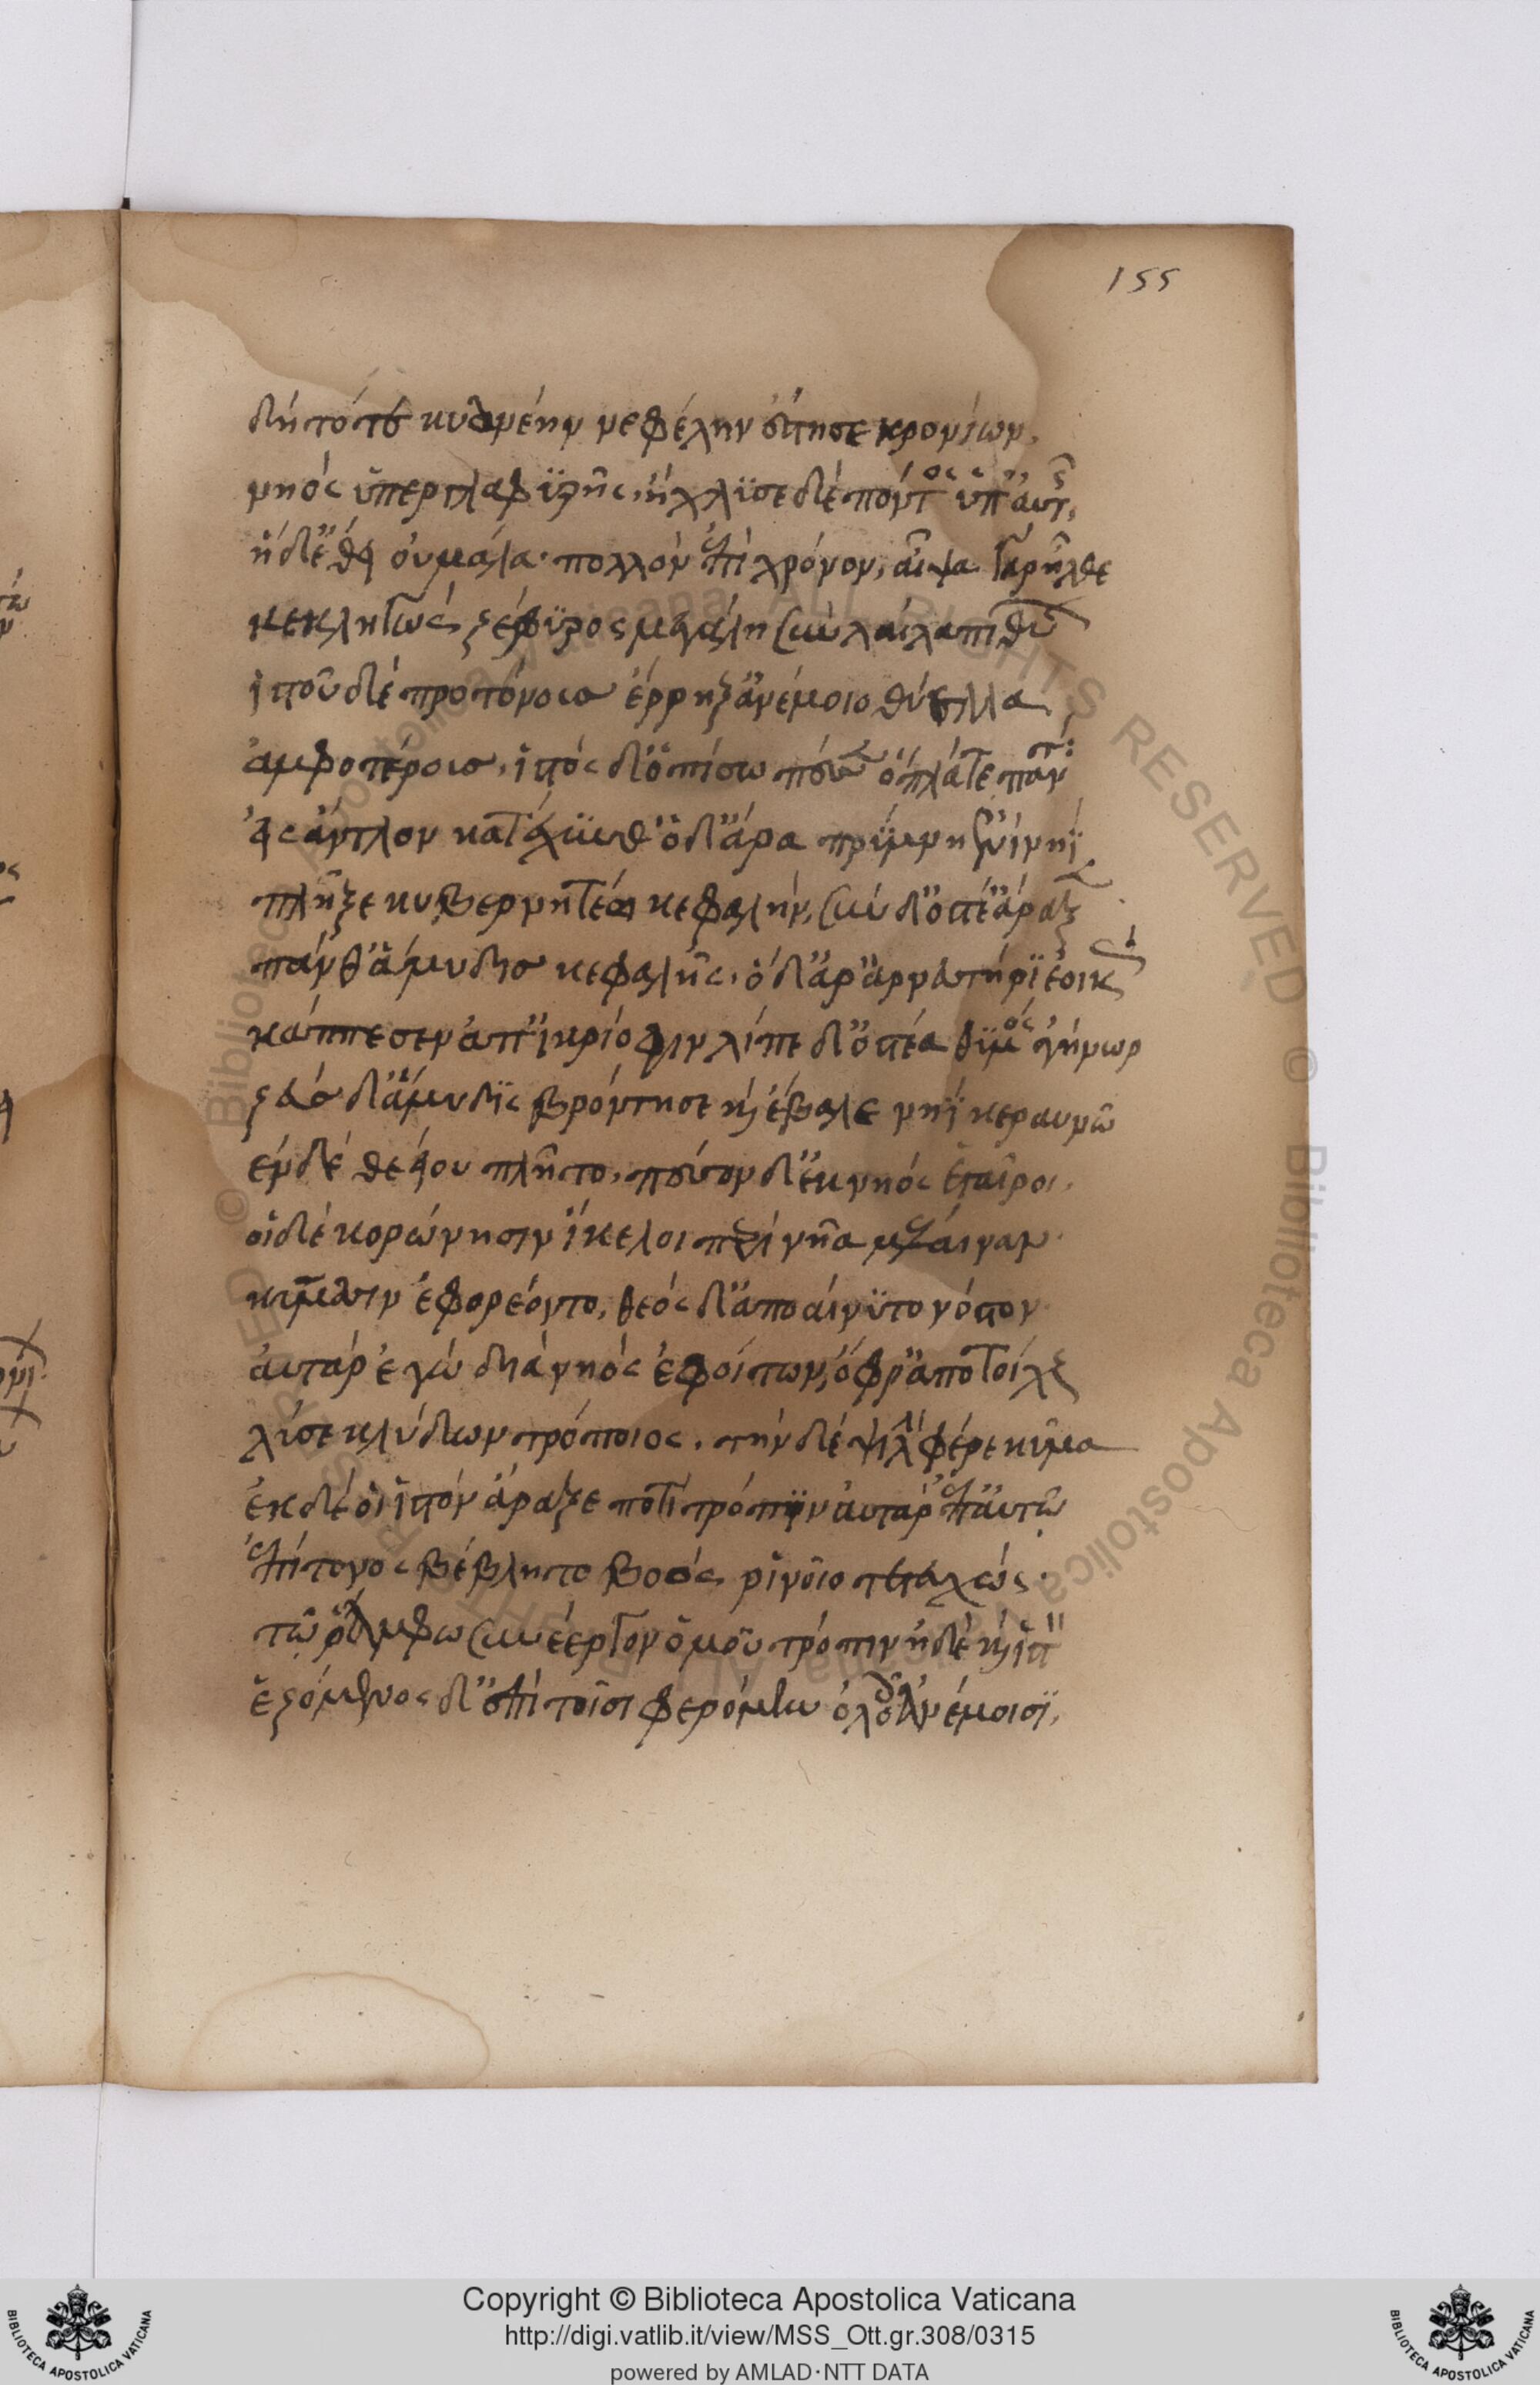 155
δὴ τότε κυανέην νεφέλην ἔστησε κρονίων,
νηὸς ὕπερ γλαφϋρῆς, ἤχλϋσε δὲ πόντος ὑπ' αὐτῆς,
ἡ δ' ἔθει οὐ μάλα πολλὸν ἐπὶ χρόνον, αἶψα γὰρ ἦλθε
κεκληγὼς ζέφϋρος μεγάλη σὺν λαίλαπι θύων
ἱστοῦ δὲ προτόνους ἔρρηξ' ἀνέμοιο θύελλα
ἀμφοτέρους, ἱστὸς δ' ὀπίσω πέσεν ὅπλά τε πάντα
εἰς ἄντλον κατέχυνθ' ὁ δ' ἄρα πρύμνη ἐνὶ νηῒ
πλῆξε κυβερνήτεω κεφαλήν, σὺν δ' ὀστέ' ἄραξε
πάνθ' ἄμυδις κεφαλῆς, ὁ δ' ἄρ' ἀρνευτῆρι ἐοικὼς
κάππεσεν ἀπ' ἰκριόφιν λίπε δ' ὀστέα θυμὸς ἀγήνωρ
ζεὺς δ' ἄμυδις βρόντησε καὶ ἔβαλε νηῒ κεραυνῶ
ἐν δὲ θεείου πλῆτο, πέσον δ' ἐκ νηὸς ἑταῖροι,
οἱ δὲ κορώνησιν ἴκελοι περὶ νῆα μέλαιναν
κύμασιν ἐφορέοντο, θεὸς δ' ἀποαίνϋτο νόστον
αὐτὰρ ἐγὼ διὰ νηὸς ἐφοίτων, ὄφρ' ἀπὸ τοίχους
λῦσε κλύδων τρόπιος, τὴν δὲ ψιλὴν φέρε κῦμα
ἐκ δέ οἱ ἱστὸν ἄραξε ποτὶ τρόπιν αὐτὰρ ἐπ' αὐτῶ
ἐπίτονος βέβλητο βοὸς ῥινοῖο τετευχώς
τῷ ῥ' ἄμφω συνέεργον ὁμοῦ τρόπιν ἠδὲ καὶ ἱστὸν
ἑζόμενος δ' ἐπὶ τοῖσι φερόμην ὀλοοῖς ἀνέμοισι,
Copyright © Biblioteca Apostolica Vaticana
http://digi.vatlib.it/view/MSS_Ott.gr.308/0315
powered by AMLAD·NTT DATA